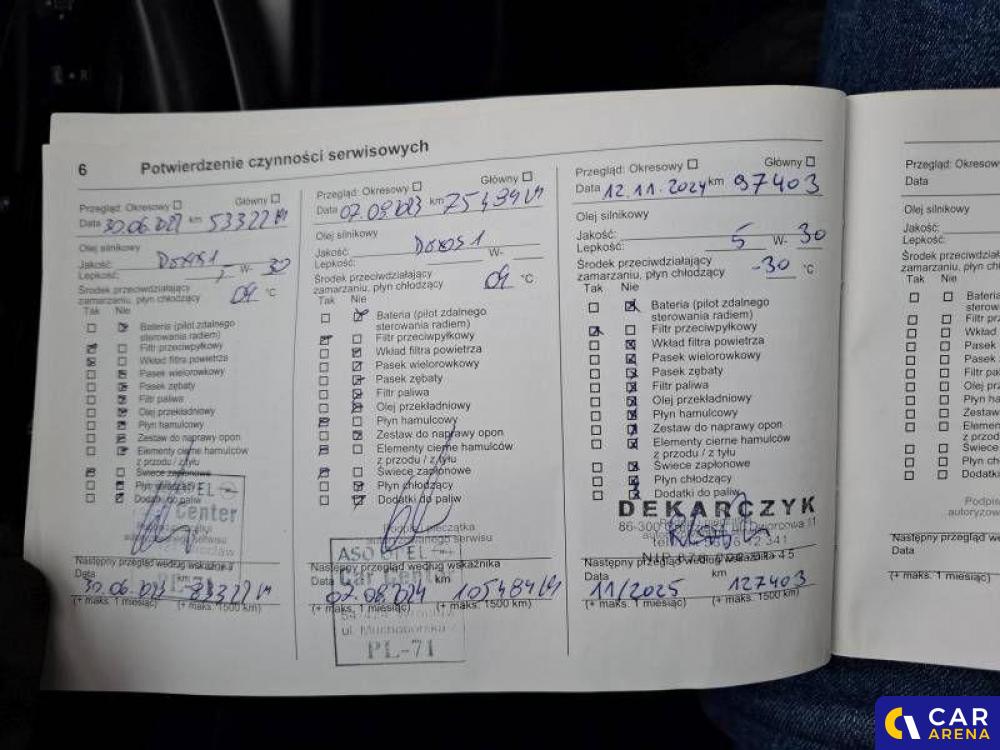 6 Potwierdzenie czynności serwisowych
Przegląd: Okresowy Główny
Data 30.06.022 km 53322
Olej silnikowy
Jakość: Dexos 1
Lepkość: W- 30
Środek przeciwdziałający
zamarzaniu, płyn chłodzący °C
Tak Nie
Bateria (pilot zdalnego
sterowania radiem)
Filtr przeciwpyłkowy
Wkład filtra powietrza
Pasek wielorowkowy
Pasek zębaty
Filtr paliwa
Olej przekładniowy
Płyn hamulcowy
Zestaw do naprawy opon
Elementy cierne hamulców
z przodu / z tyłu
Świece zapłonowe
Płyn chłodzący
Dodatki do paliw
Center
Następny przegląd według wskaźnika
Data 30.06.023 km 83322
(+ maks. 1 miesiąc) (+ maks. 1500 km)
Przegląd: Okresowy Główny
Data km 75484
Olej silnikowy
Jakość: Dexos 1
Lepkość: W-
Środek przeciwdziałający
zamarzaniu, płyn chłodzący °C
Tak Nie
Bateria (pilot zdalnego
sterowania radiem)
Filtr przeciwpyłkowy
Wkład filtra powietrza
Pasek wielorowkowy
Pasek zębaty
Filtr paliwa
Olej przekładniowy
Płyn hamulcowy
Zestaw do naprawy opon
Elementy cierne hamulców
z przodu / z tyłu
Świece zapłonowe
Płyn chłodzący
Dodatki do paliw
Podpis i pieczątka
autoryzowanego serwisu
ASO OPEL
Następny przegląd według wskaźnika
Car Center
Data km 105484
(+ maks. 1 miesiąc) (+ maks. 1500 km)
ul. Muchoborska
PL-71
Przegląd: Okresowy Główny
Data 12.11.2024 km 97403
Olej silnikowy
Jakość:
Lepkość: 5 W- 30
Środek przeciwdziałający
zamarzaniu, płyn chłodzący -30 °C
Tak Nie
Bateria (pilot zdalnego
sterowania radiem)
Filtr przeciwpyłkowy
Wkład filtra powietrza
Pasek wielorowkowy
Pasek zębaty
Filtr paliwa
Olej przekładniowy
Płyn hamulcowy
Zestaw do naprawy opon
Elementy cierne hamulców
z przodu / z tyłu
Świece zapłonowe
Płyn chłodzący
Dodatki do paliw
DEKARCZYK
Następny przegląd według wskaźnika
Data 11/2025 km 127403
(+ maks. 1 miesiąc) (+ maks. 1500 km)
Przegląd: Okresowy
Data
Olej silnikowy
Jakość:
Lepkość:
Środek
zamarzaniu
Tak Nie
CAR
ARENA